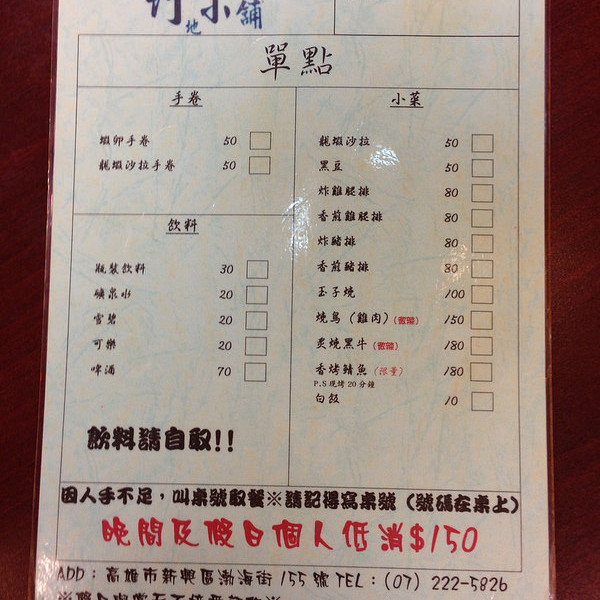 地
舖
單點
手卷
蝦卵手卷 50
龍蝦沙拉手卷 50
飲料
瓶裝飲料 30
礦泉水 20
雪碧 20
可樂 20
啤酒 70
飲料請自取!!
小菜
龍蝦沙拉 50
黑豆 50
炸雞腿排 80
香煎雞腿排 80
炸豬排 80
香煎豬排 80
玉子燒 100
燒鳥(雞肉) 150
炙燒黑牛 180
香烤鯖魚(限量) 180
P.S現烤20分鐘
白飯 10
因人手不足,叫桌號取餐※請記得寫桌號(號碼在桌上)
晚間及假日個人低消$150
ADD:高雄市新興區渤海街155號TEL:(07) 222-5826